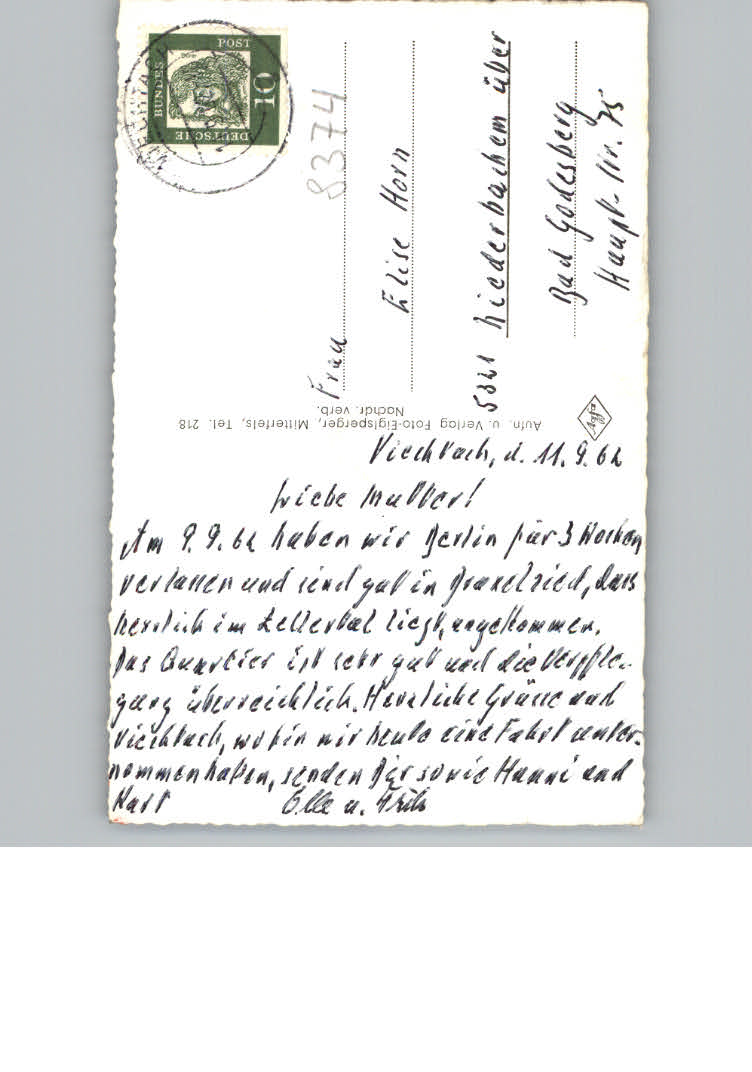 Viechtach, d. 11.9.62
Liebe Mutter!
Am 9.9.62 haben wir Berlin für 3 Wochen
verlassen und sind gut in Draxelsried, dass
herrlich im Zellertal liegt, angekommen.
Das Quartier ist sehr gut und die Verpfle-
gung überreichlich. Herzliche Grüsse aus
Viechtach, wohin wir heute eine Fahrt unter-
nommen haben, senden Dir sowie Hanni und
Kurt
u. Fritz
Frau
Elise Horn
5321 Niederbachem über
Bad Godesberg
Haupt-Str. 75
8374
DEUTSCHE
BUNDES
POST
10
VIECHTACH
Aufn. u. Verlag Foto-Eiglsperger, Mitterfels, Tel. 218
Nachdr. verb.
Agfa